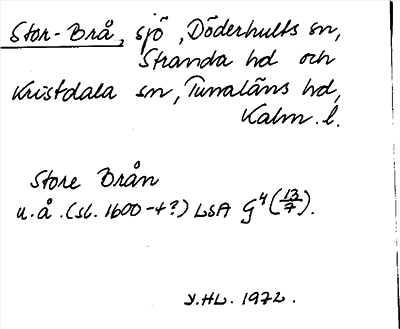 Stor-Brå, sjö, Döderhults sn,
Stranda hd och
Kristdala sn, Tunaläns hd,
Kalm. l.
Store Brån
u. å. (sl. 1600-t?) LSA G⁴ (13/7).
Y.HL. 1972.